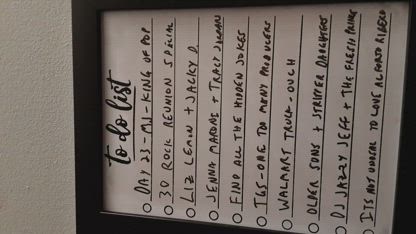 to do list
DAY 23 - MJ - KING OF POP
30 ROCK REUNION SPECIAL
LIZ LEMON + JACKY D.
JENNA MARONI + TRACY JORDAN
FIND ALL THE HIDDEN JOKES
TGS - ONE TOO MANY PRODUCERS
WALMART TRUCK - OUCH
OLDER SONS + STRIPPER DAUGHTERS
DJ JAZZY JEFF + THE FRESH PRINCE
ITS NOT UNUSUAL TO LOVE ALFONSO RIBEIRO